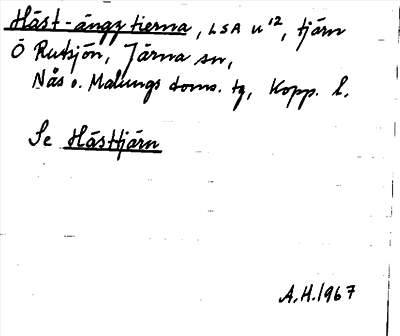 Häst-ängz tierna, LSA u¹², tjärn
Ö Rutsjön, Järna sn,
Nås o. Malungs doms. tg, Kopp. l.
Se Hästtjärn
A.H. 1967